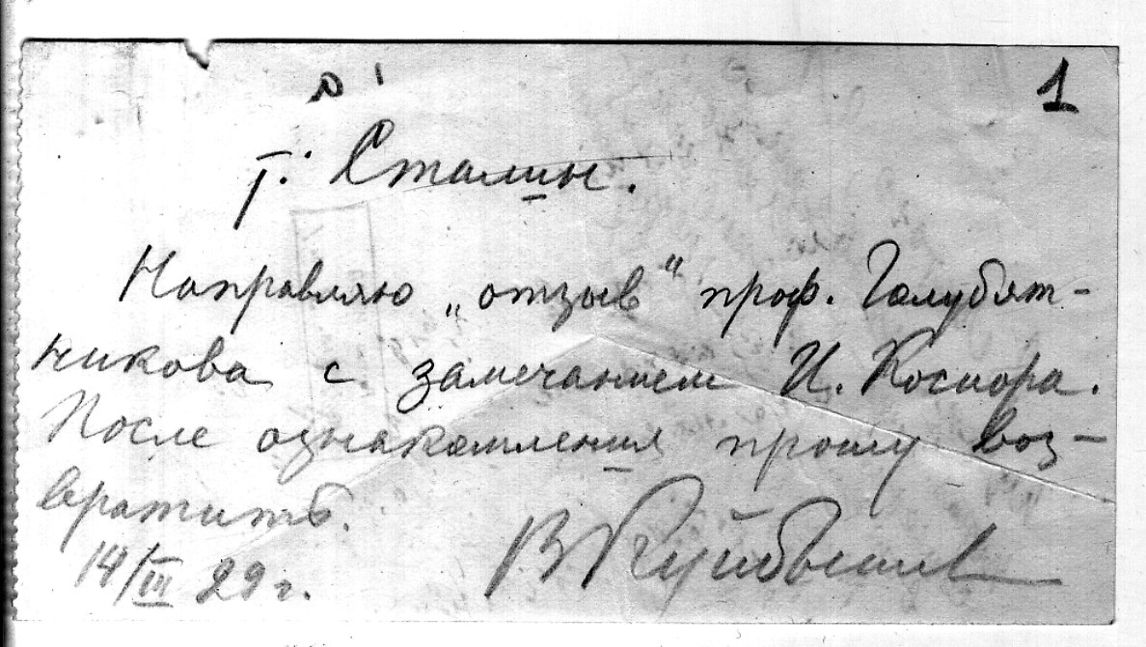 1
т. Сталин.
Направляю „отзыв“ проф. Голубят-
никова с замечанием И. Косиора.
После ознакомления прошу воз-
вратить.
14/III 29 г.
В Куйбышев